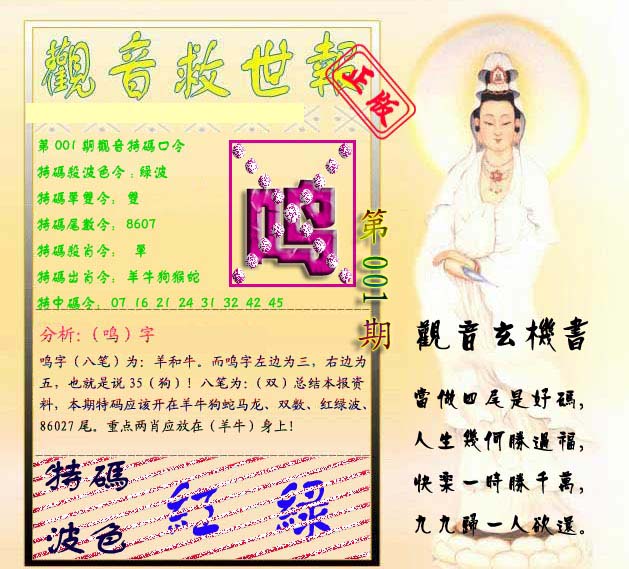 觀音救世報
正版
第001期觀音特碼口令
特碼殺波色令:綠波
特碼單雙令: 雙
特碼尾數令: 8607
特碼殺肖令: 單
特碼出肖令: 羊牛狗猴蛇
特中碼令: 07 16 21 24 31 32 42 45
鸣
第001期
分析:(鸣)字
鸣字(八笔)为:羊和牛。而鸣字左边为三,右边为
五,也就是说35(狗)!八笔为:(双)总结本报资
料,本期特码应该开在羊牛狗蛇马龙、双数、红绿波、
86027尾。重点两肖应放在(羊牛)身上!
特碼
波色
紅 綠
觀音玄機書
當做四尾是好碼,
人生幾何勝過福,
快樂一時勝千萬,
九九歸一人欲還。